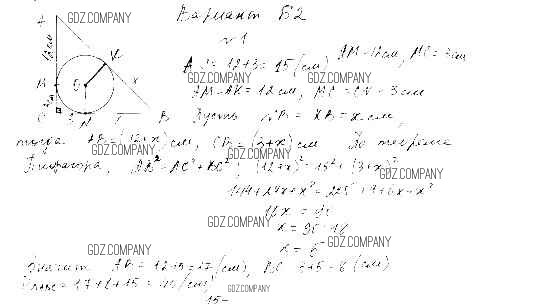 A
GDZ.COMPANY
Вариант Б2
K
12 см
№1
AC = 12+3 = 15 (см)
AM = 12 см, MC = 3 см
GDZ.COMPANY
GDZ.COMPANY
M
O
x
AM = AK = 12 см, MC = CN = 3 см
GDZ.COMPANY
C
N
B
Пусть NB = KB = x см,
тогда AB = (12+x) см, CB = (3+x) см По теореме
GDZ.COMPANY
GDZ.COMPANY
Пифагора, AB² = AC² + BC², (12+x)² = 15² + (3+x)²
GDZ.COMPANY
144+24x+x² = 225+9+6x+x²
18x = 90
GDZ.COMPANY
x = 90:18
x = 5
GDZ.COMPANY
GDZ.COMPANY
Значит AB = 12+5 = 17 (см), BC = 3+5 = 8 (см)
= 17+8+15 = 40 (см)
GDZ.COMPANY
15